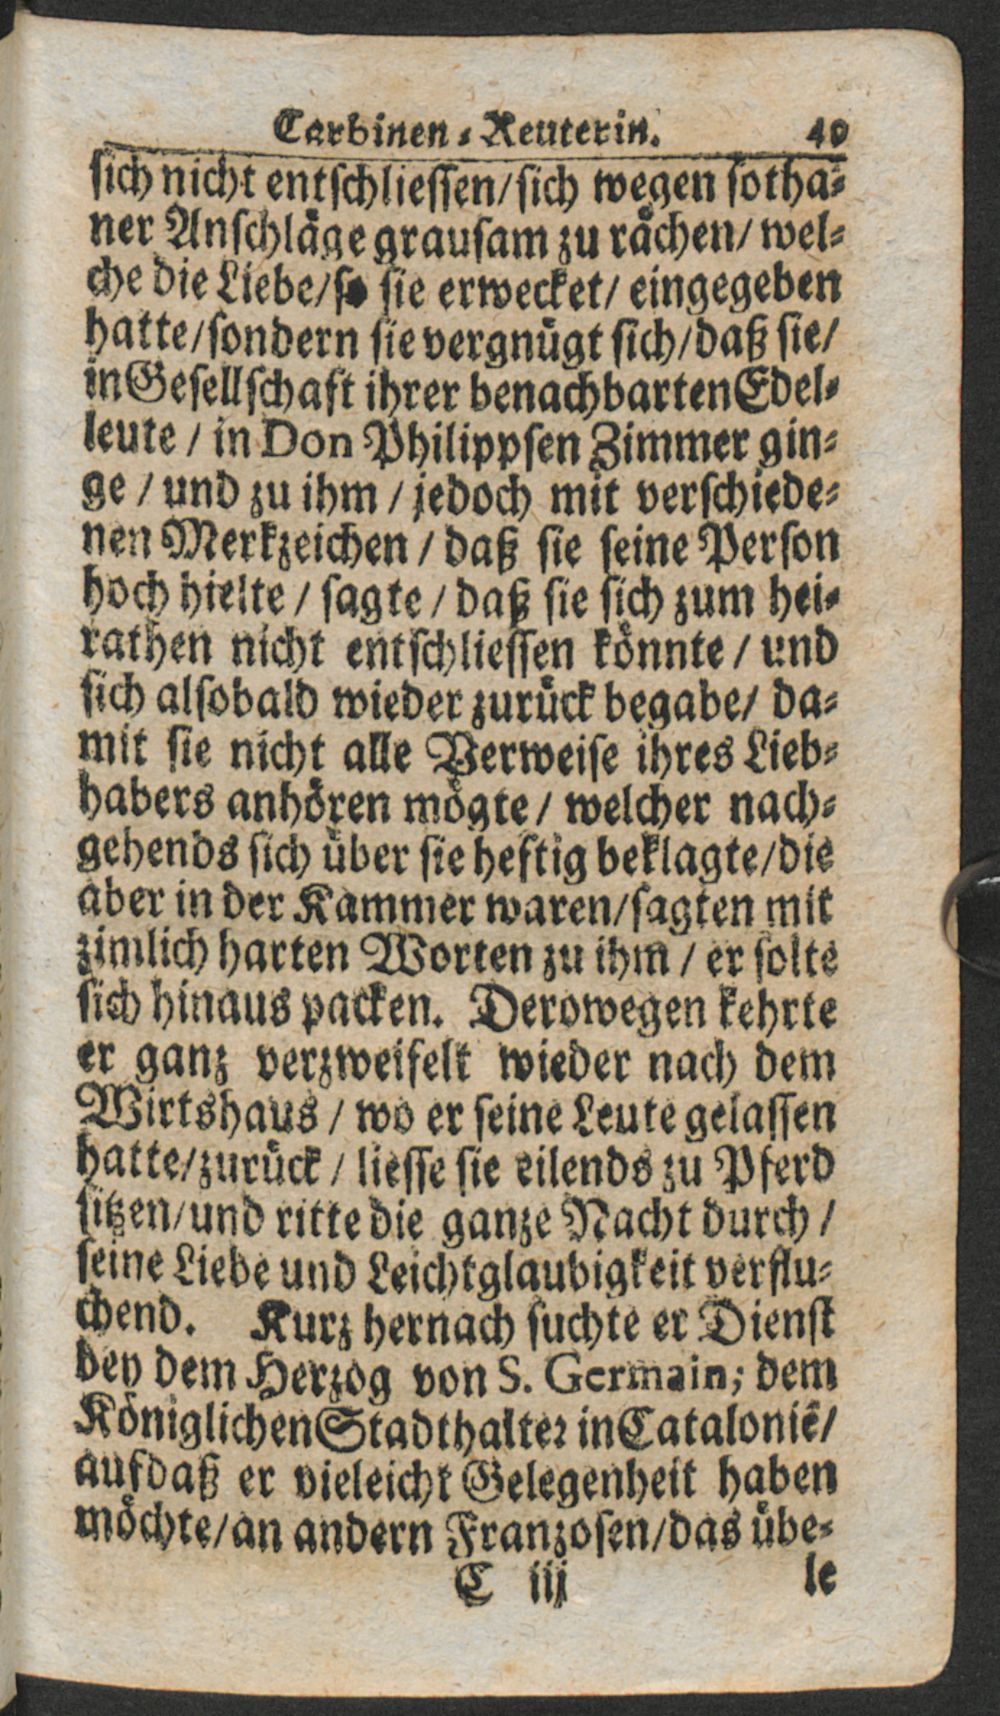 Carbinen-Reuterin. 49
sich nicht entschliessen/ sich wegen sotha-
ner Anschläge grausam zu rächen/ wel-
che die Liebe/ so sie erwecket/ eingegeben
hatte/ sondern sie vergnügt sich/ daß sie/
in Gesellschaft ihrer benachbarten Edel-
leute / in Don Philippsen Zimmer gin-
ge / und zu ihm / jedoch mit verschiede-
nen Merkzeichen / daß sie seine Person
hoch hielte / sagte / daß sie sich zum hei-
rathen nicht entschliessen könnte / und
sich alsobald wieder zurück begabe/ da-
mit sie nicht alle Verweise ihres Lieb-
habers anhören mögte / welcher nach-
gehends sich über sie heftig beklagte/ die
aber in der Kammer waren/ sagten mit
zimlich harten Worten zu ihm / er solte
sich hinaus packen. Derowegen kehrte
er ganz verzweifelt wieder nach dem
Wirtshaus / wo er seine Leute gelassen
hatte/ zurück / liesse sie eilends zu Pferd
sitzen/ und ritte die ganze Nacht durch /
seine Liebe und Leichtglaubigkeit verflu-
chend. Kurz hernach suchte er Dienst
bey dem Herzog von S. Germain; dem
Königlichen Stadthalter in Cataloniē/
aufdaß er vieleicht Gelegenheit haben
möchte/ an andern Franzosen/ das übe-
C iij le